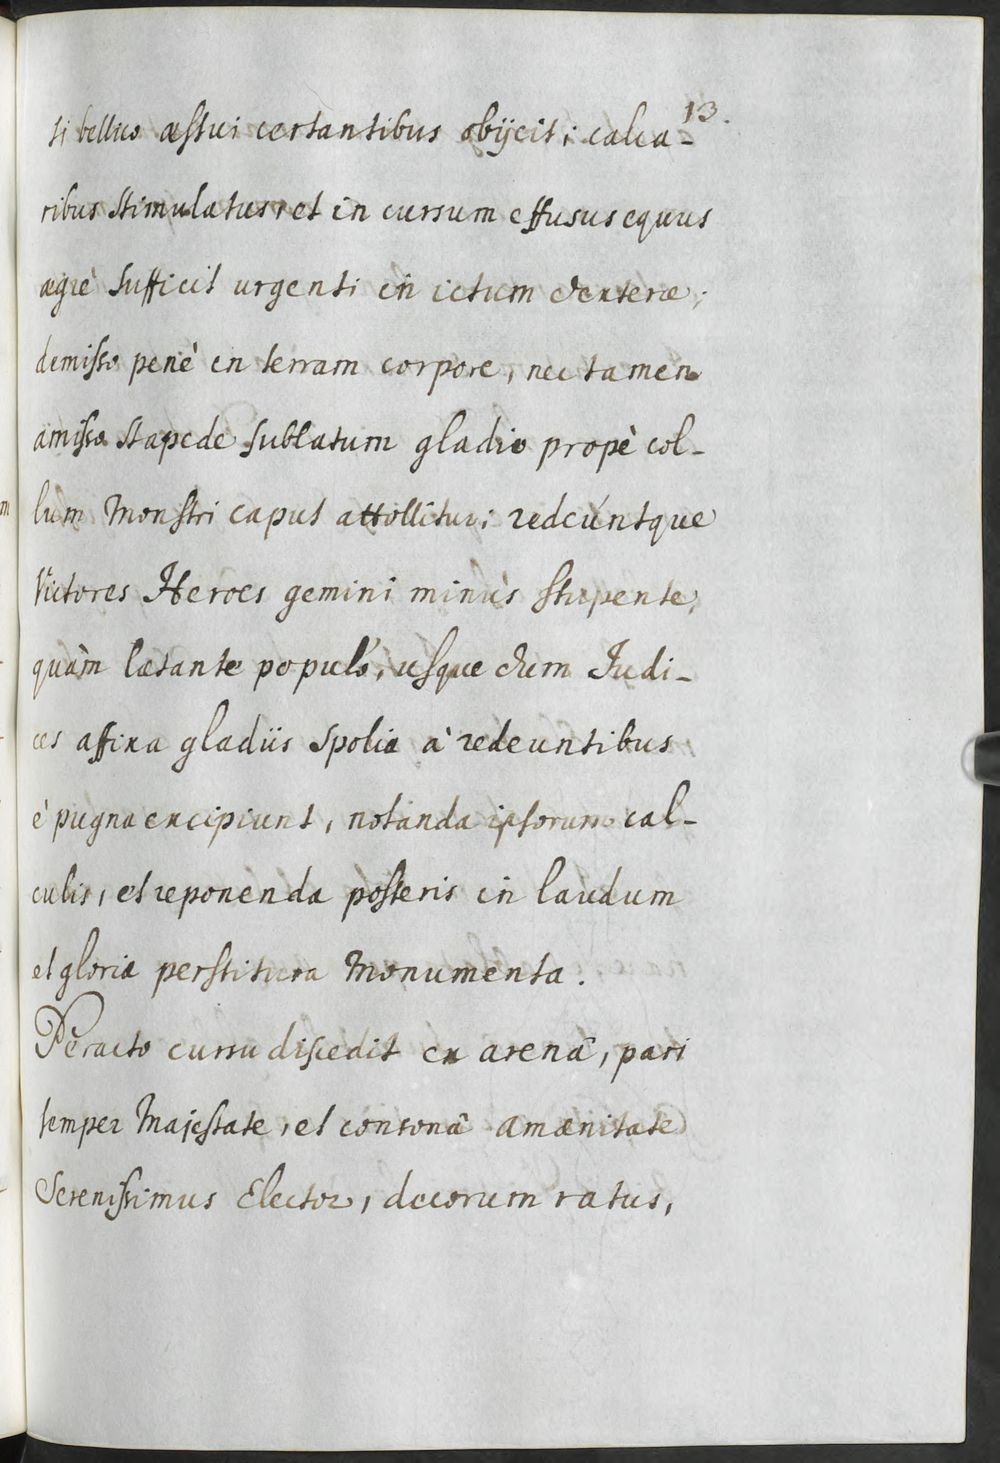 13.
ti bellico æstui certantibus obijcit; calca-
ribus stimulatus, et in cursum effusus equus
ægrè sufficit urgenti in ictum dexteræ;
demisso penè in terram corpore, nec tamen
amisso stapede sublatum gladio propè col-
lum Monstri caput attollitur; redeúntque
Victores Heroes gemini minùs stupente,
quàm lætante populô, usque dum Judi-
ces affixa gladiis spolia à redeuntibus
è pugna excipiunt, notanda ipsorum cal-
culis, et reponenda posteris in laudum
et gloriæ perstitura Monumenta.
Peracto cursu discedit ex arenâ, pari
semper Majestate, et consonâ amænitate
Serenissimus Elector, decorum ratus,